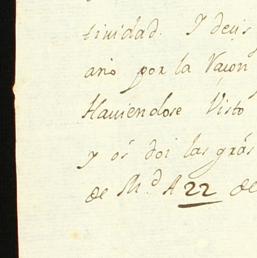 tividad. Y decis
año por la Vacon
Haviendose Visto
y os doi las grās
de M.d A 22 de